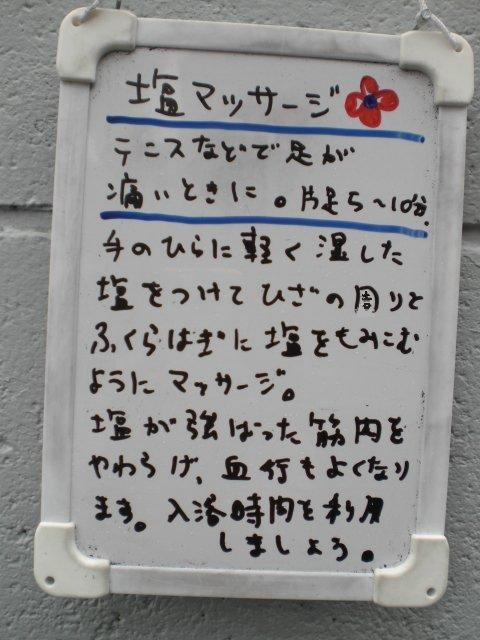 塩マッサージ
テニスなどで足が
痛いときに。片足5～10分.
手のひらに軽く湿した
塩をつけてひざの周りと
ふくらはぎに塩をもみこむ
ようにマッサージ。
塩が強ばった筋肉を
やわらげ、血行もよくなり
ます。入浴時間を利用
しましょう。